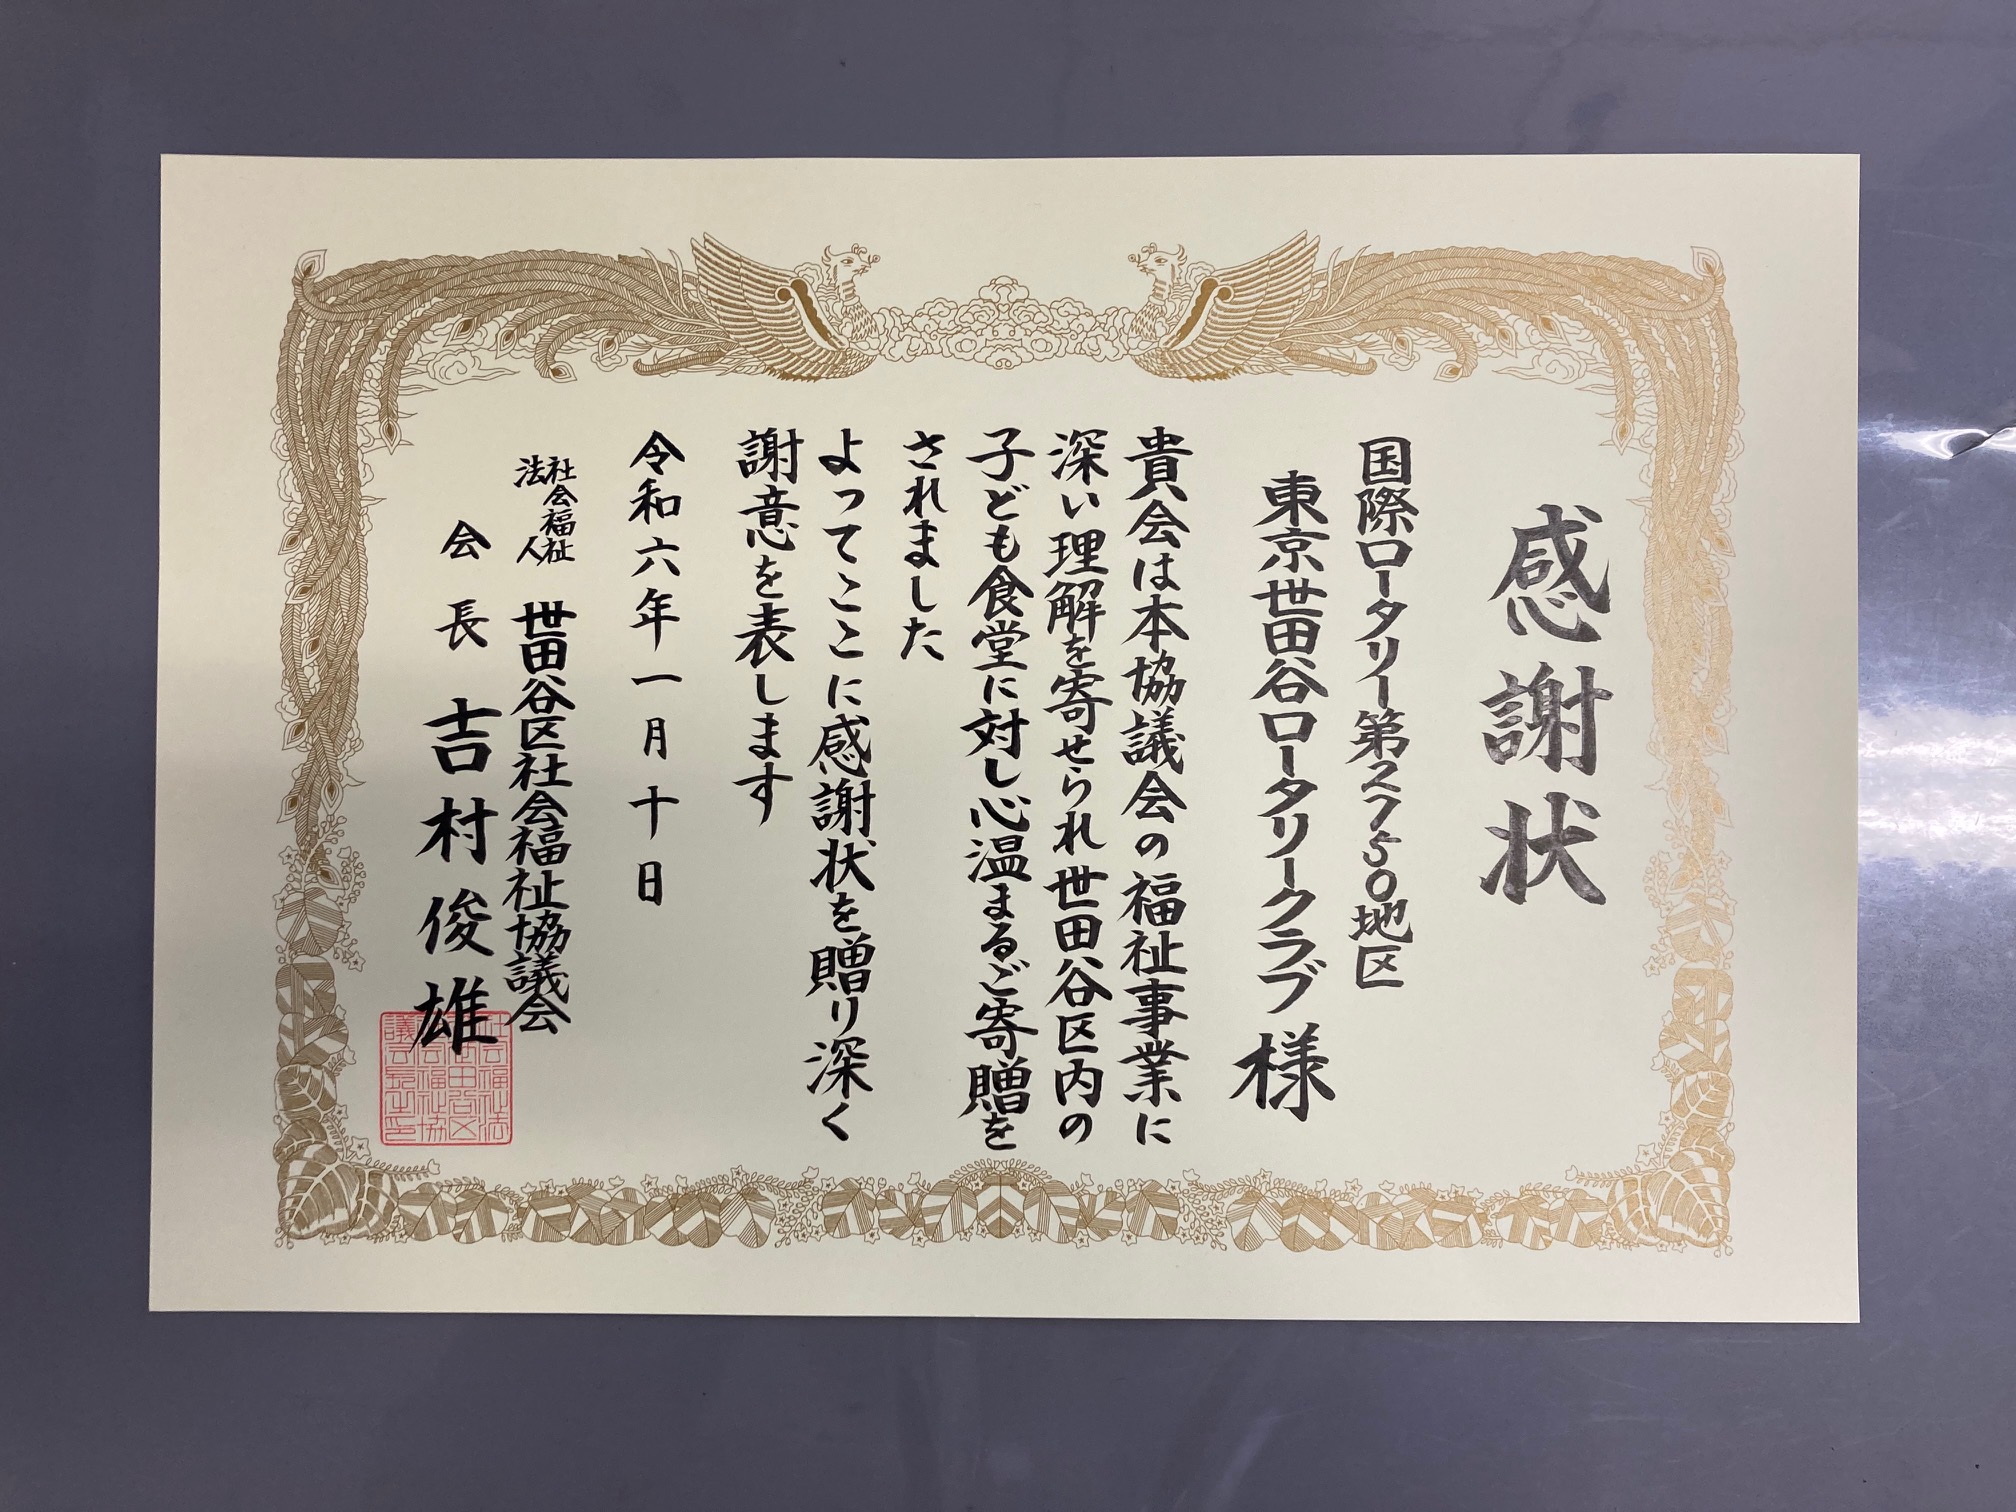 感謝状
国際ロータリー第2750地区
東京世田谷ロータリークラブ様
貴会は本協議会の福祉事業に
深い理解を寄せられ世田谷区内の
子ども食堂に対し心温まるご寄贈を
されました
よってここに感謝状を贈り深く
謝意を表します
令和六年一月十日
社会福祉
法人
世田谷区社会福祉協議会
会長 吉村俊雄
社会福祉法
人世田谷区
社会福祉協
議会長之印